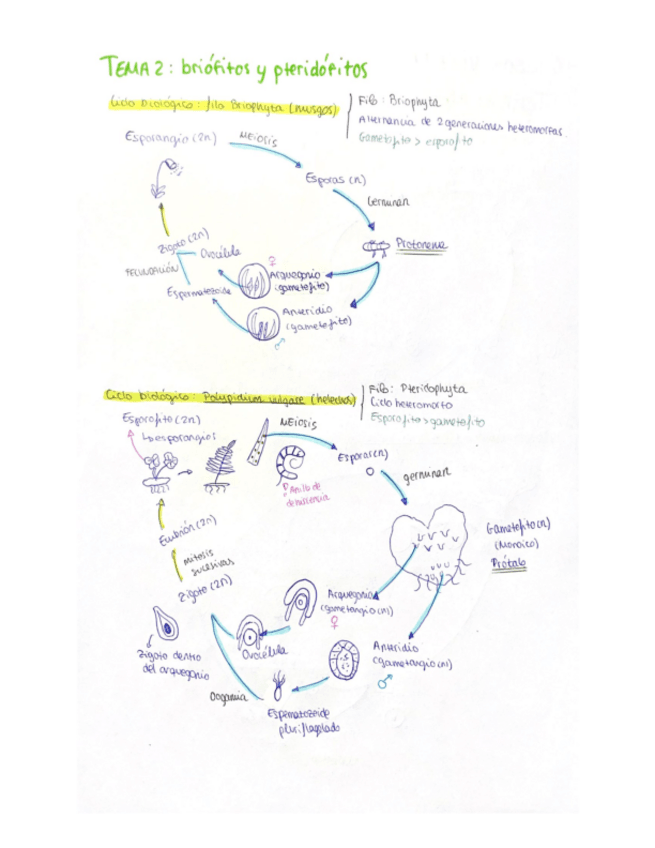 TEMA 2: briófitos y pteridófitos
Ciclo biológico: filo Briophyta (musgos)
Filo: Briophyta
Alternancia de 2 generaciones heteromorfas
Gametofito > esporofito
Esporangio (2n)
MEIOSIS
Esporas (n)
Germinan
Protonema
Zigoto (2n)
Ovocélula
FECUNDACIÓN
Espermatozoide
♀
Arquegonio
(gametofito)
Anteridio
(gametofito)
♂
Ciclo biológico: Polypidium vulgare (helechos)
Filo: Pteridophyta
Ciclo heteromorfo
Esporofito > gametofito
Esporofito (2n)
↳ esporangios
MEIOSIS
Esporas (n)
germinan
Anillo de
dehiscencia
Gametofito (n)
(Monoico)
Prótalo
Embrión (2n)
mitosis
sucesivas
Zigoto (2n)
Arquegonio
(gametangio (n))
♀
Ovocélula
Anteridio
(gametangio (n))
♂
Zigoto dentro
del arquegonio
Oogamia
Espermatozoide
pluriflagelado